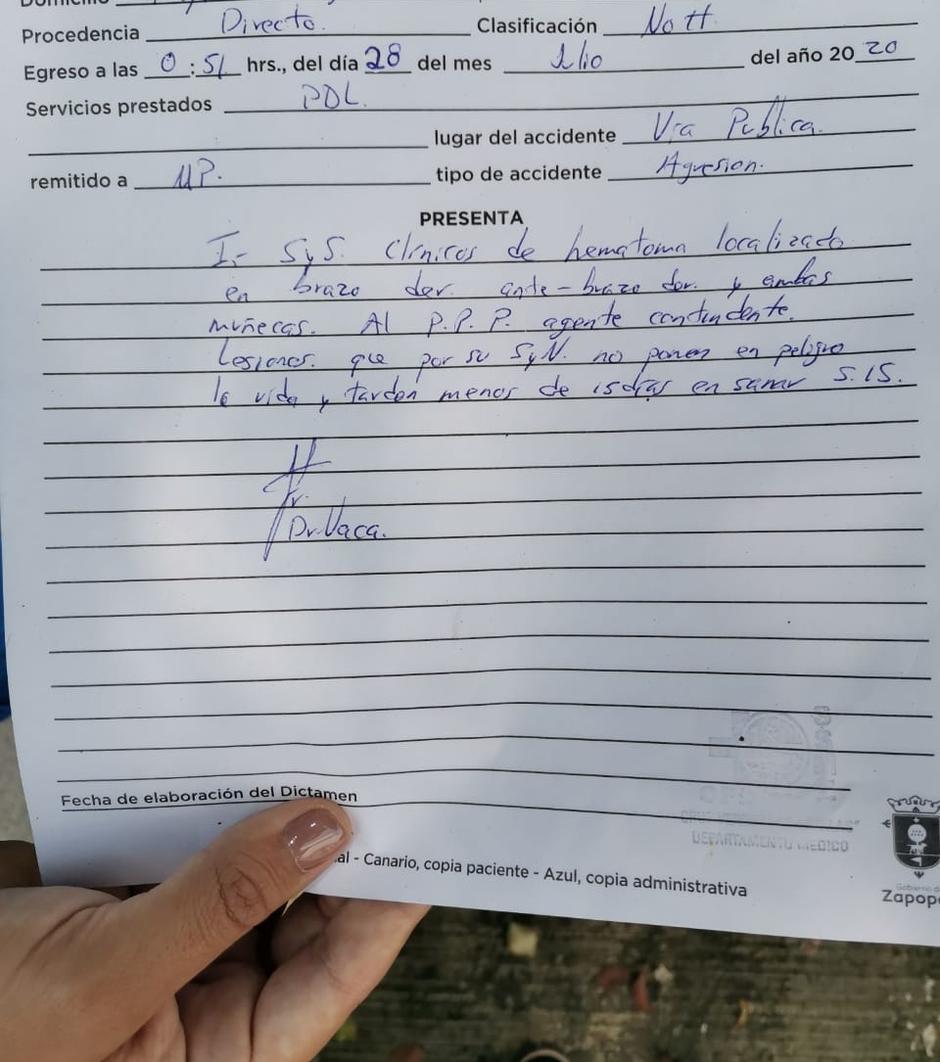 Procedencia Directo. Clasificación No H
Egreso a las 0:51 hrs., del día 28 del mes Julio del año 20 20
Servicios prestados PDL.
lugar del accidente Via Publica.
remitido a MP. tipo de accidente Agresion.
PRESENTA
I.- SyS. Clinicos de hematoma localizado
en brazo der. ante-brazo der. y ambas
muñecas. Al P.P.P. agente contundente.
Lesiones. que por su SyN. no ponen en peligro
la vida y tardan menos de 15 dias en sanar S.IS.
Dr. Vaca.
Fecha de elaboración del Dictamen
DEPARTAMENTO MEDICO
al - Canario, copia paciente - Azul, copia administrativa
Gobierno de
Zapop